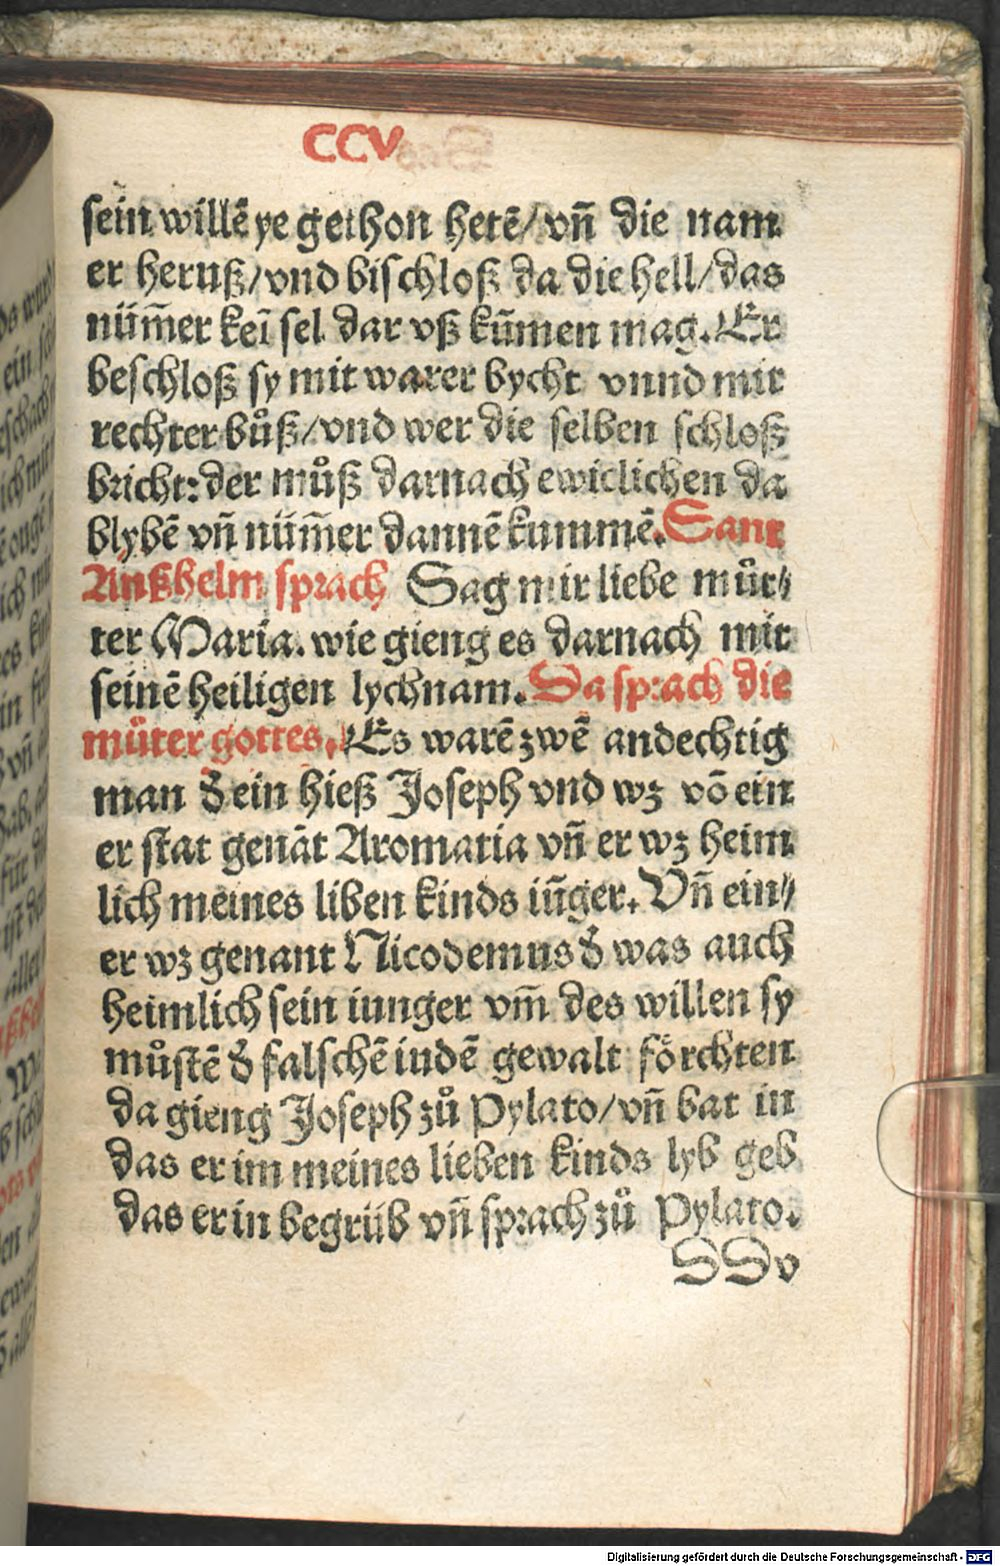 CCV
sein willē ye gethon hetē/ vn̄ die nam
er heruß/ vnd bischloß da die hell/ das
nüm̄er keī sel dar vß kūmen mag. Er
beschloß sy mit warer bycht vnnd mit
rechter bůß/ vnd wer die selben schloß
bricht: der můß darnach ewiclichen da
blybē vn̄ nüm̄er dannē kummē. Sant
Anßhelm sprach Sag mir liebe můt⸗
ter Maria. wie gieng es darnach mit
seinē heiligen lychnam. Da sprach die
můter gottes. Es warē zwē andechtig
man đ ein hieß Joseph vnd wz vō ein
er stat genāt Aromatia vn̄ er wz heim
lich meines liben kinds iūger. Vn̄ ein⸗
er wz genant Nicodemus đ was auch
heimlich sein iunger vm̄ des willen sy
můstē đ falschē iudē gewalt förchten
da gieng Joseph zů Pylato/ vn̄ bat in
das er im meines lieben kinds lyb geb
das er in begrüb vn̄ sprach zů Pylato.
SS v
Digitalisierung gefördert durch die Deutsche Forschungsgemeinschaft - DFG